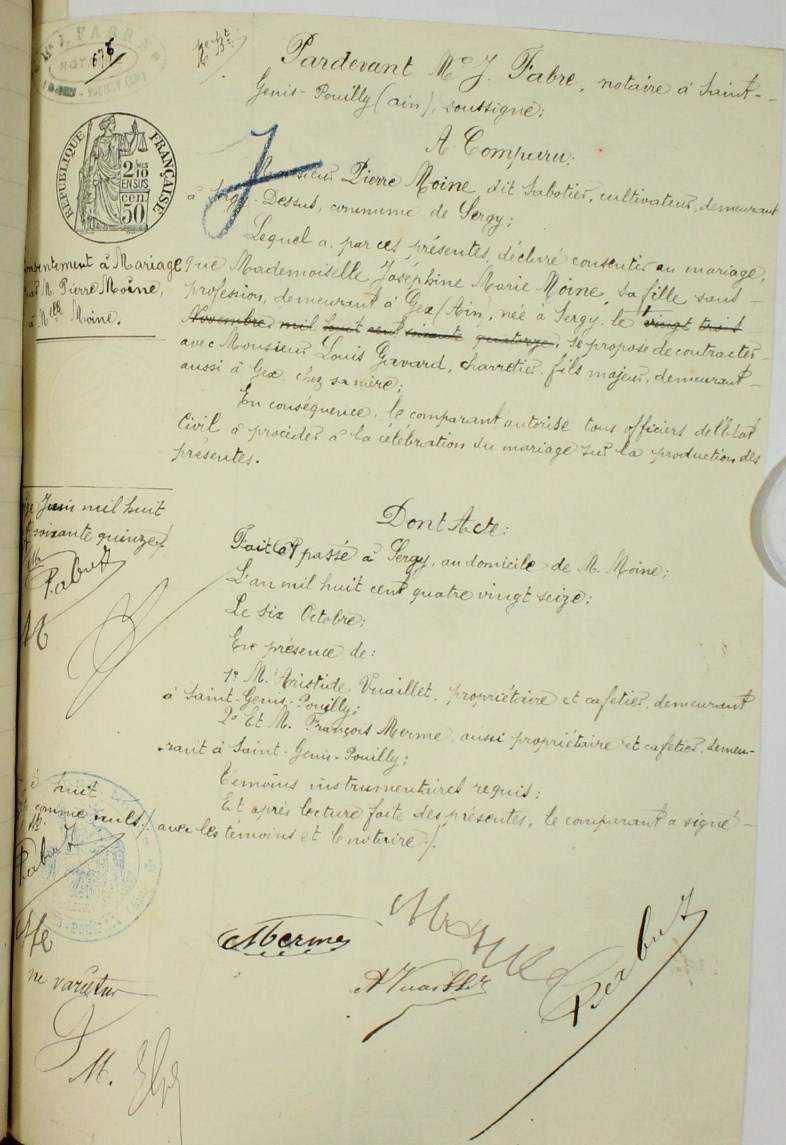 Me J. FABRE
675
Pardevant Me J. Fabre, notaire à Saint-
Genis-Pouilly (Ain), soussigné;
A Comparu:
Monsieur Pierre Moine, dit Sabotier, cultivateur, demeurant
à Sergy-Dessus, commune de Sergy;
RÉPUBLIQUE FRANÇAISE
2/10 EN SUS
50 cen.
Lequel a, par ces présentes, déclaré consentir au mariage,
que Mademoiselle Joséphine Marie Moine, sa fille sans
profession, demeurant à Gex (Ain, née à Sergy, le vingt trois
Novembre mil huit cent soixante quatorze, se propose de contracter
avec Monsieur Louis Gavard, charretier, fils majeur, demeurant
aussi à Gex, chez sa mère;
En conséquence, le comparant autorise tous officiers de l'état
Civil à procéder à la célébration du mariage sur la production des
présentes.
Consentement à Mariage
M. Pierre Moine,
à Melle Moine.
Dont Acte:
Fait et passé à Sergy, au domicile de M. Moine;
L'an mil huit cent quatre vingt seize;
Le six Octobre;
En présence de:
1º M. Aristide Vuaillet, propriétaire et cafetier, demeurant
à Saint-Genis-Pouilly;
2º Et M. François Merme, aussi propriétaire et cafetier, demeu-
rant à Saint-Genis-Pouilly;
Témoins instrumentaires requis;
Et après lecture faite des présentes, le comparant a signé
avec les témoins et le notaire./.
Juin mil huit
soixante quinze
huit
comme nuls
Merme
A Vuaillet
ne varietur
M.